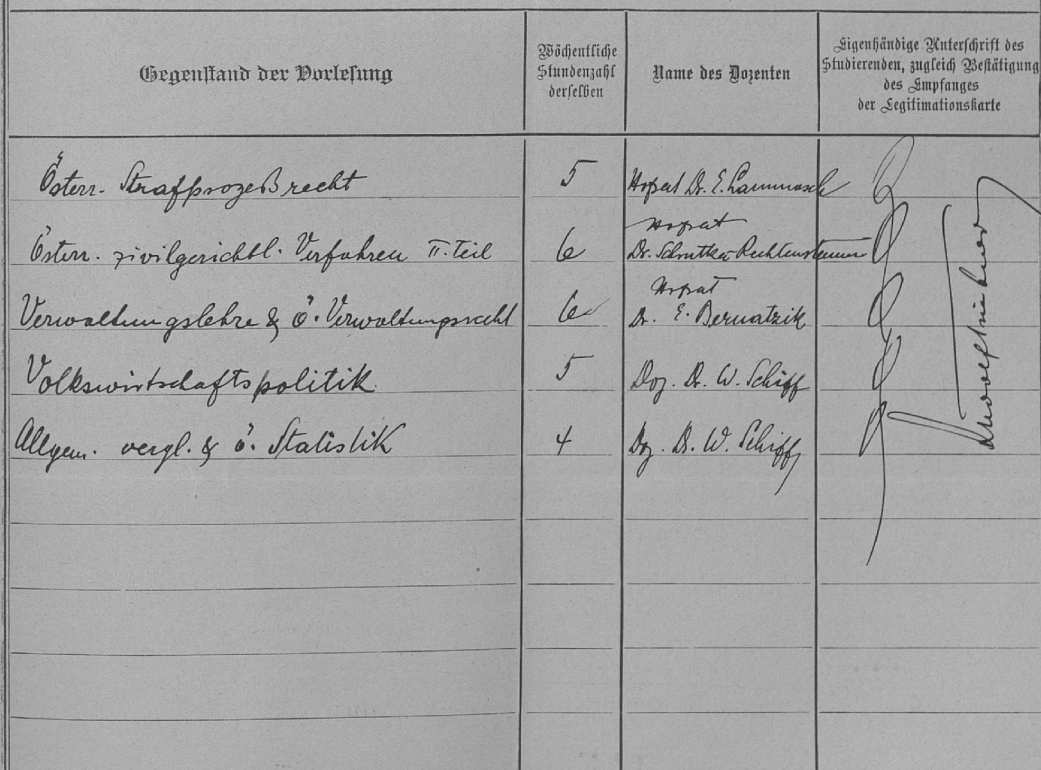 Gegenstand der Vorlesung
Wöchentliche
Stundenzahl
derselben
Name des Dozenten
Eigenhändige Unterschrift des
Studierenden, zugleich Bestätigung
des Empfanges
der Legitimationskarte
Österr. Strafprozeßrecht 5 Hofrat Dr. E. Lammasch
Österr. zivilgerichtl. Verfahren II. Teil 6 Hofrat Dr. Schrutka-Rechtenstamm
Verwaltungslehre & ö. Verwaltungsrecht 6 Hofrat Dr. E. Bernatzik
Volkswirtschaftspolitik 5 Doz. Dr. W. Schiff
Allgem. vergl. & ö. Statistik 4 Doz. Dr. W. Schiff